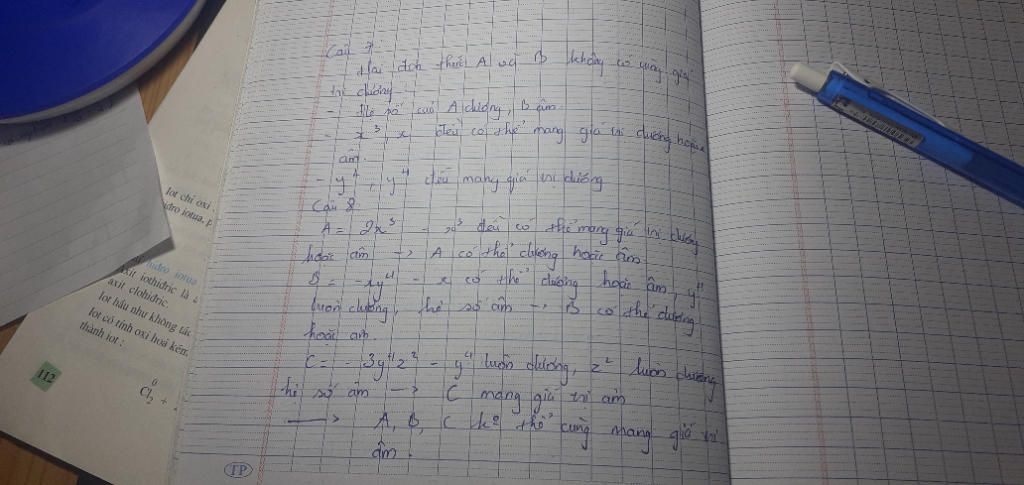 Câu 7
Hai đơn thức A và B không có cùng giá
trị dương
- Hệ số của A dương, B âm
- x³, x đều có thể mang giá trị dương hoặc
âm.
- y², y⁴ đều mang giá trị dương
Câu 8
A = 2x³ - x³ đều có thể mang giá trị dương
hoặc âm → A có thể dương hoặc âm
B = -xy⁴ - x có thể dương hoặc âm, y⁴
luôn dương, hệ số âm → B có thể dương
hoặc âm.
C = -3y⁴z² - y⁴ luôn dương, z² luôn dương
hệ số âm → C mang giá trị âm
→ A, B, C thể cùng mang giá trị
âm.
TP
Iot chỉ oxi
iđro iotua, p
hiđro iotua
axit iothiđric là
axit clohiđric.
Iot hầu như không tác
Iot có tính oxi hoá kém
thành iot :
112
0
Cl₂ +